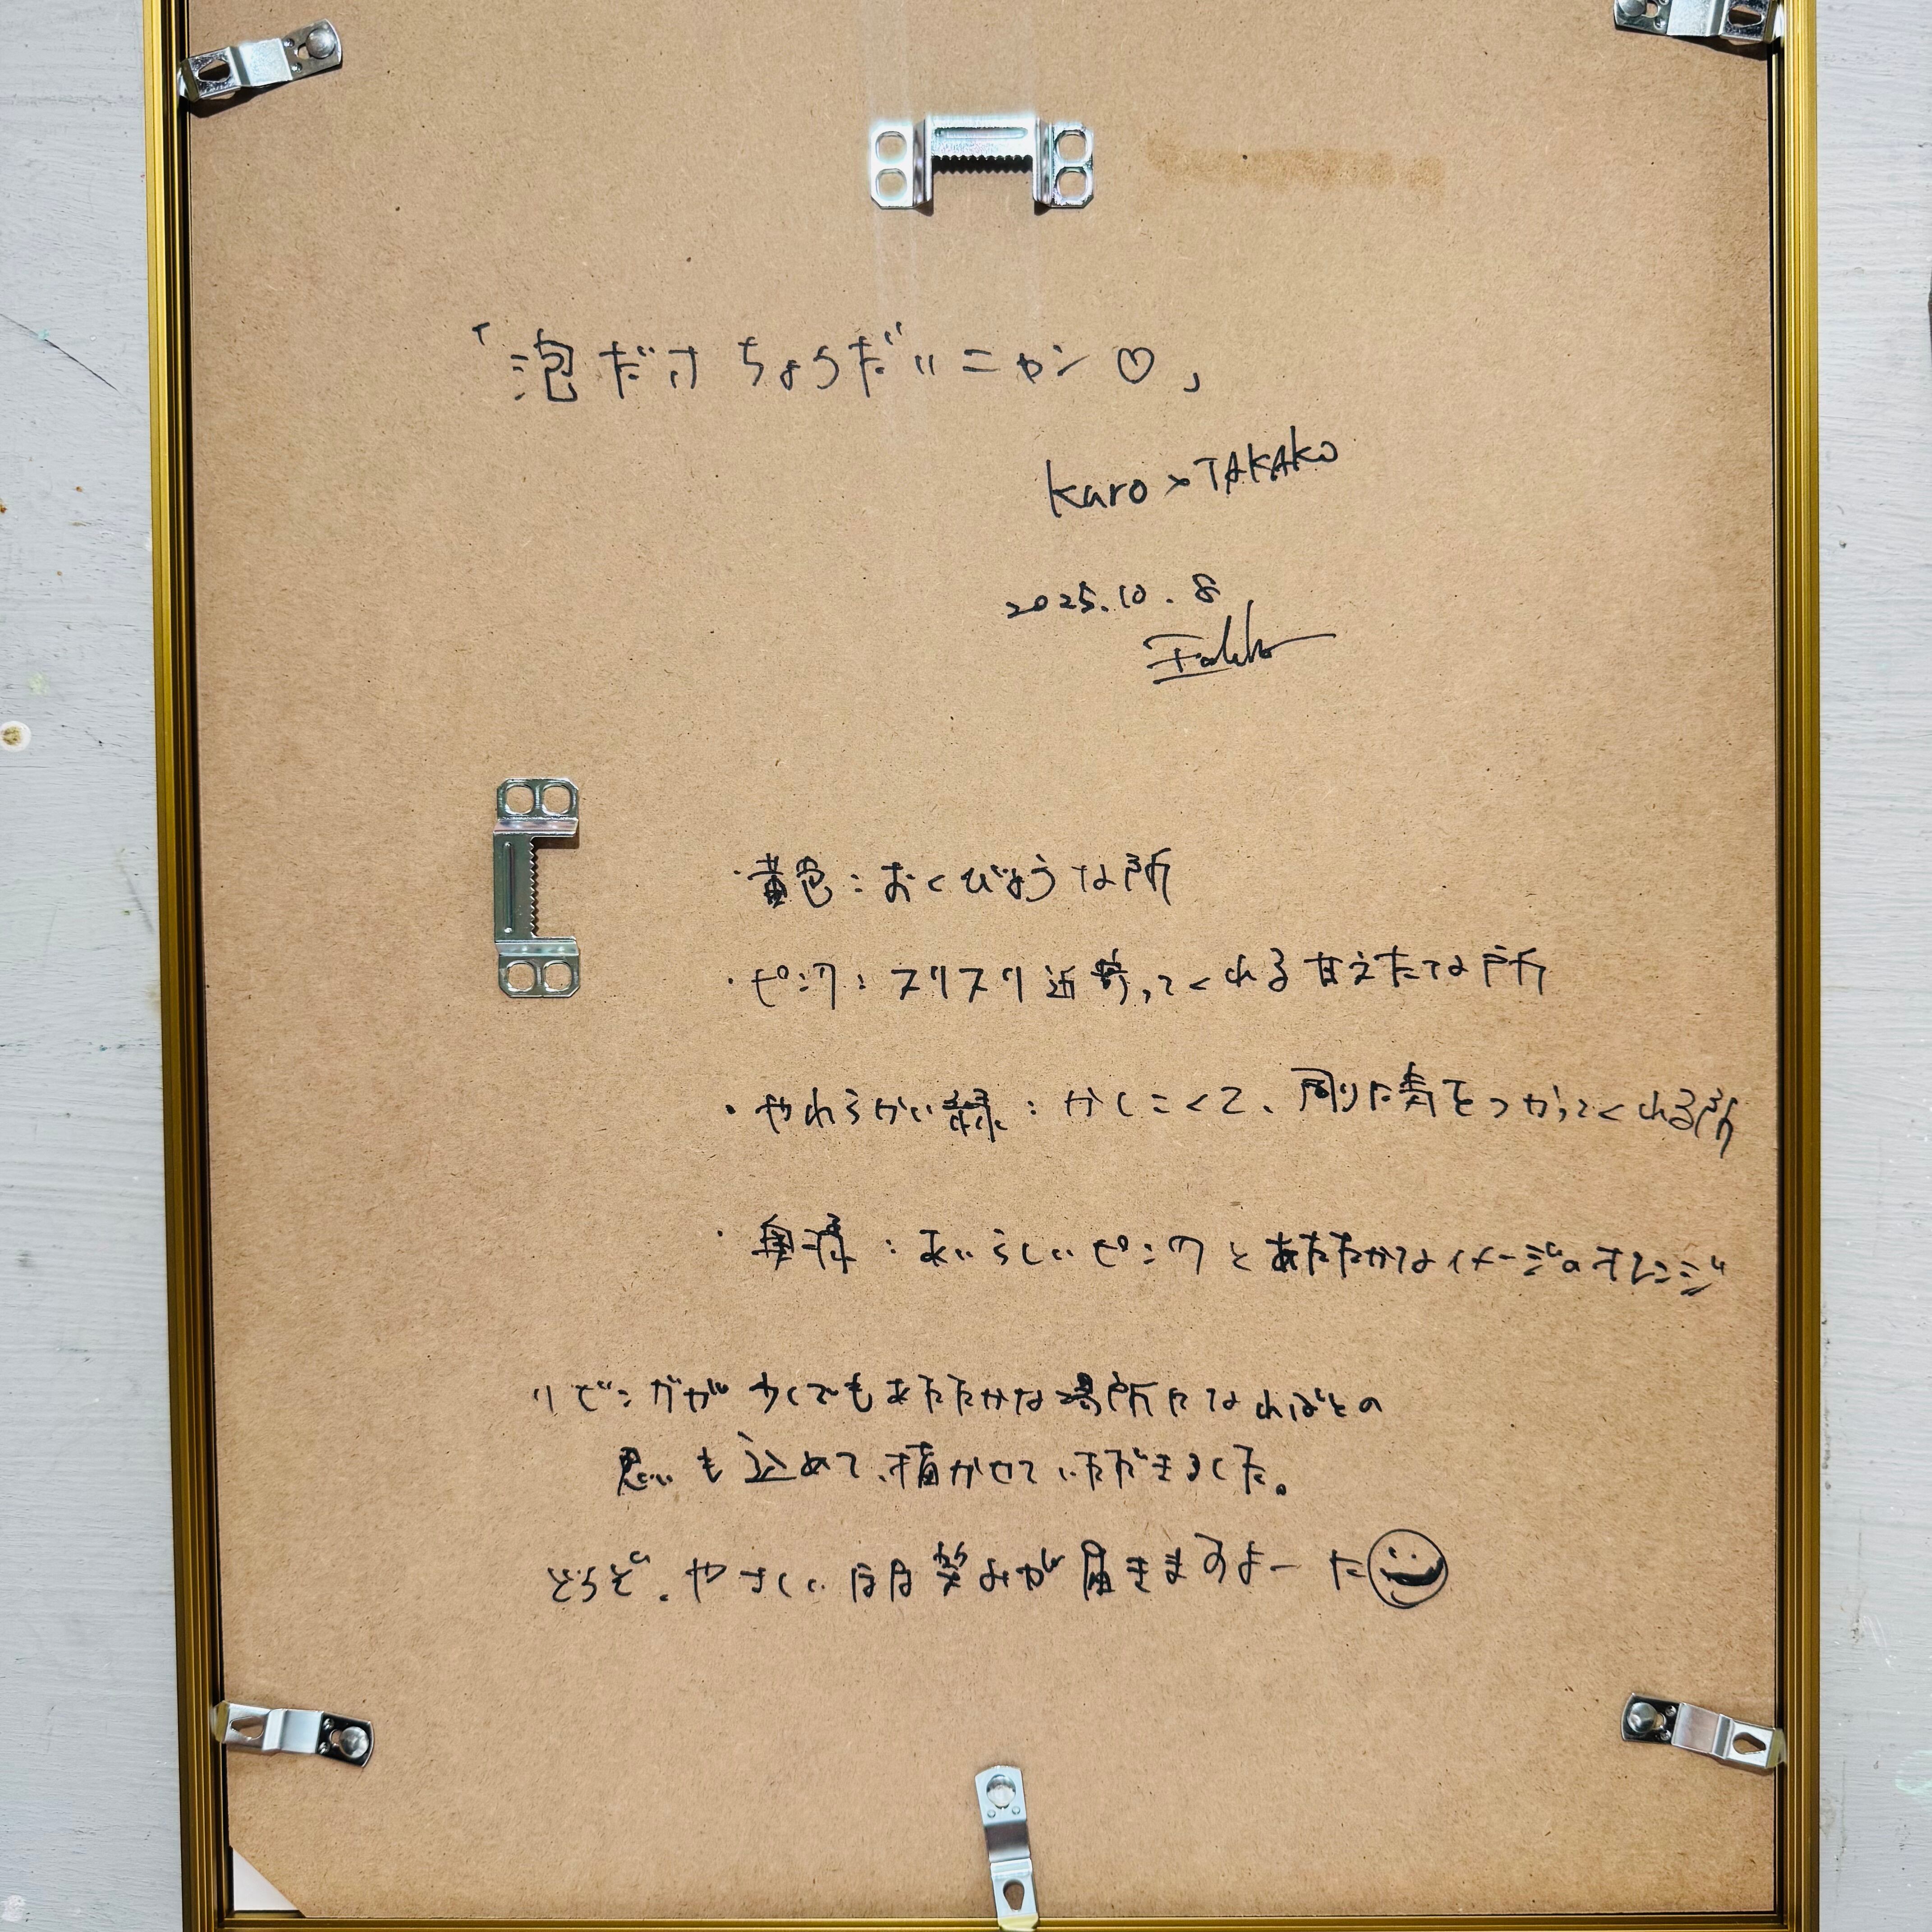 「泡だけちょうだいニャン♡」
Karo × TAKAKO
2025.10.8
・黄色:おくびょうな所
・ピンク:スリスリ近寄ってくれる甘えたな所
・やわらかい緑:かしこくて、周りに気をつかってくれる所
:あいらしいピンクとあたたかなイメージのオレンジ
リビングが少しでもあたたかな場所になればとの
思いも込めて、描かせていただきました。
どうぞ、やさしいほほ笑みが届きますよーに